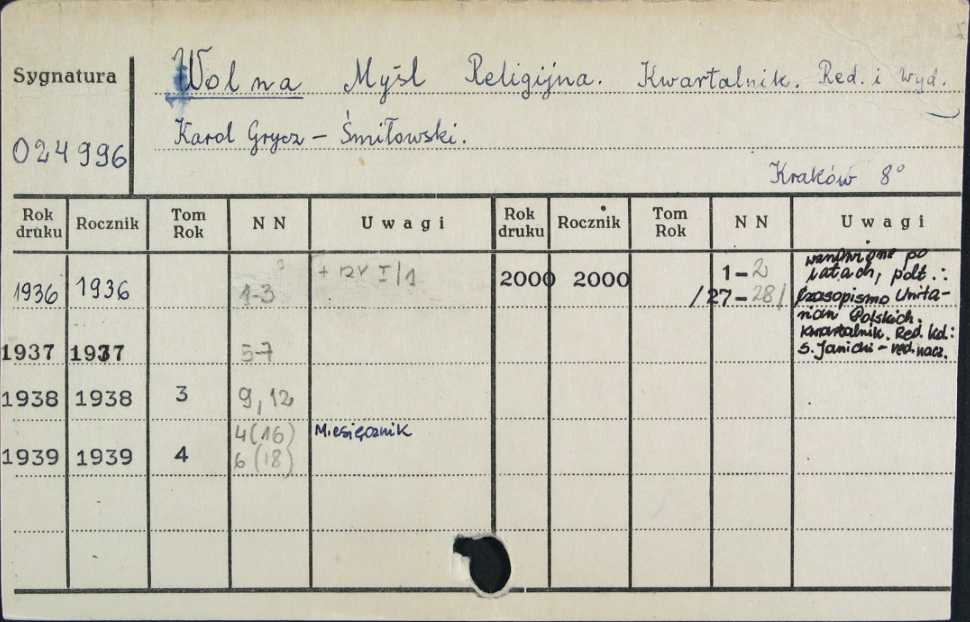 Sygnatura
Wolna Myśl Religijna. Kwartalnik. Red. i wyd.
Karol Grycz – Śmiłowski.
024996
Kraków 8°
Rok druku Rocznik Tom Rok NN Uwagi Rok druku Rocznik Tom Rok NN Uwagi
1936 1936 1-3 I/1 2000 2000 1-2
/27-28/
po latach, podt.:
Czasopismo Unita-
rian Polskich.
Kwartalnik. Red. kol:
S. Janicki - red. nacz.
1937 1937 5-7
1938 1938 3 9, 12
1939 1939 4 4(16) Miesięcznik
6(18)